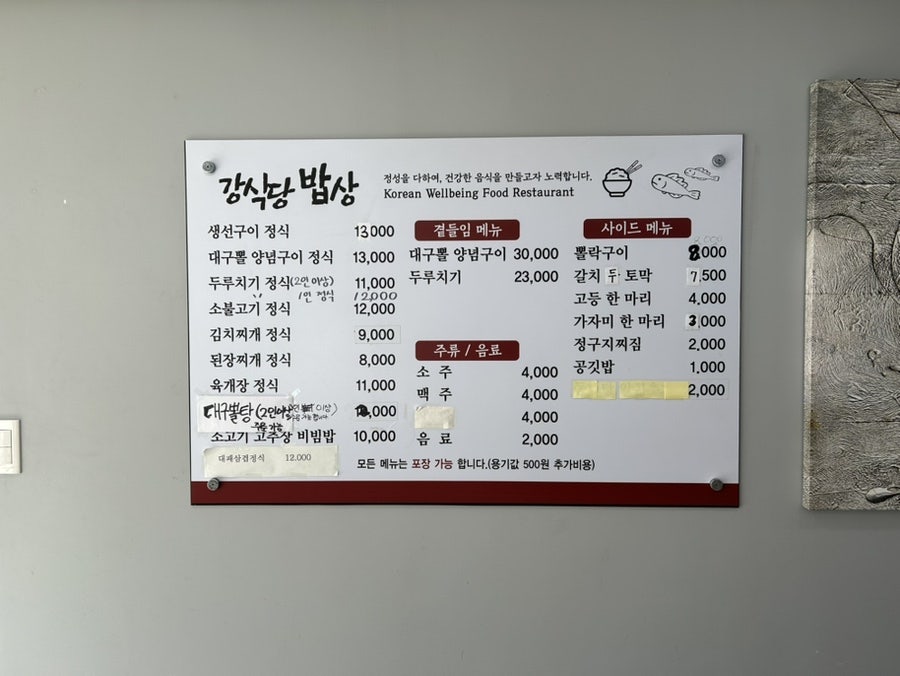 강식당 밥상
정성을 다하여, 건강한 음식을 만들고자 노력합니다.
Korean Wellbeing Food Restaurant
생선구이 정식 13,000
대구뽈 양념구이 정식 13,000
두루치기 정식(2인이상) 11,000
1인 정식 12,000
소불고기 정식 12,000
김치찌개 정식 9,000
된장찌개 정식 8,000
육개장 정식 11,000
대구뽈탕(2인이상) ,000
소고기 고추장 비빔밥 10,000
대패삼겹정식 12,000
곁들임 메뉴
대구뽈 양념구이 30,000
두루치기 23,000
주류 / 음료
소 주 4,000
맥 주 4,000
4,000
음 료 2,000
사이드 메뉴
뽈락구이 8,000
갈치 두 토막 7,500
고등 한 마리 4,000
가자미 한 마리 3,000
정구지찌짐 2,000
공깃밥 1,000
2,000
모든 메뉴는 포장 가능 합니다.(용기값 500원 추가비용)